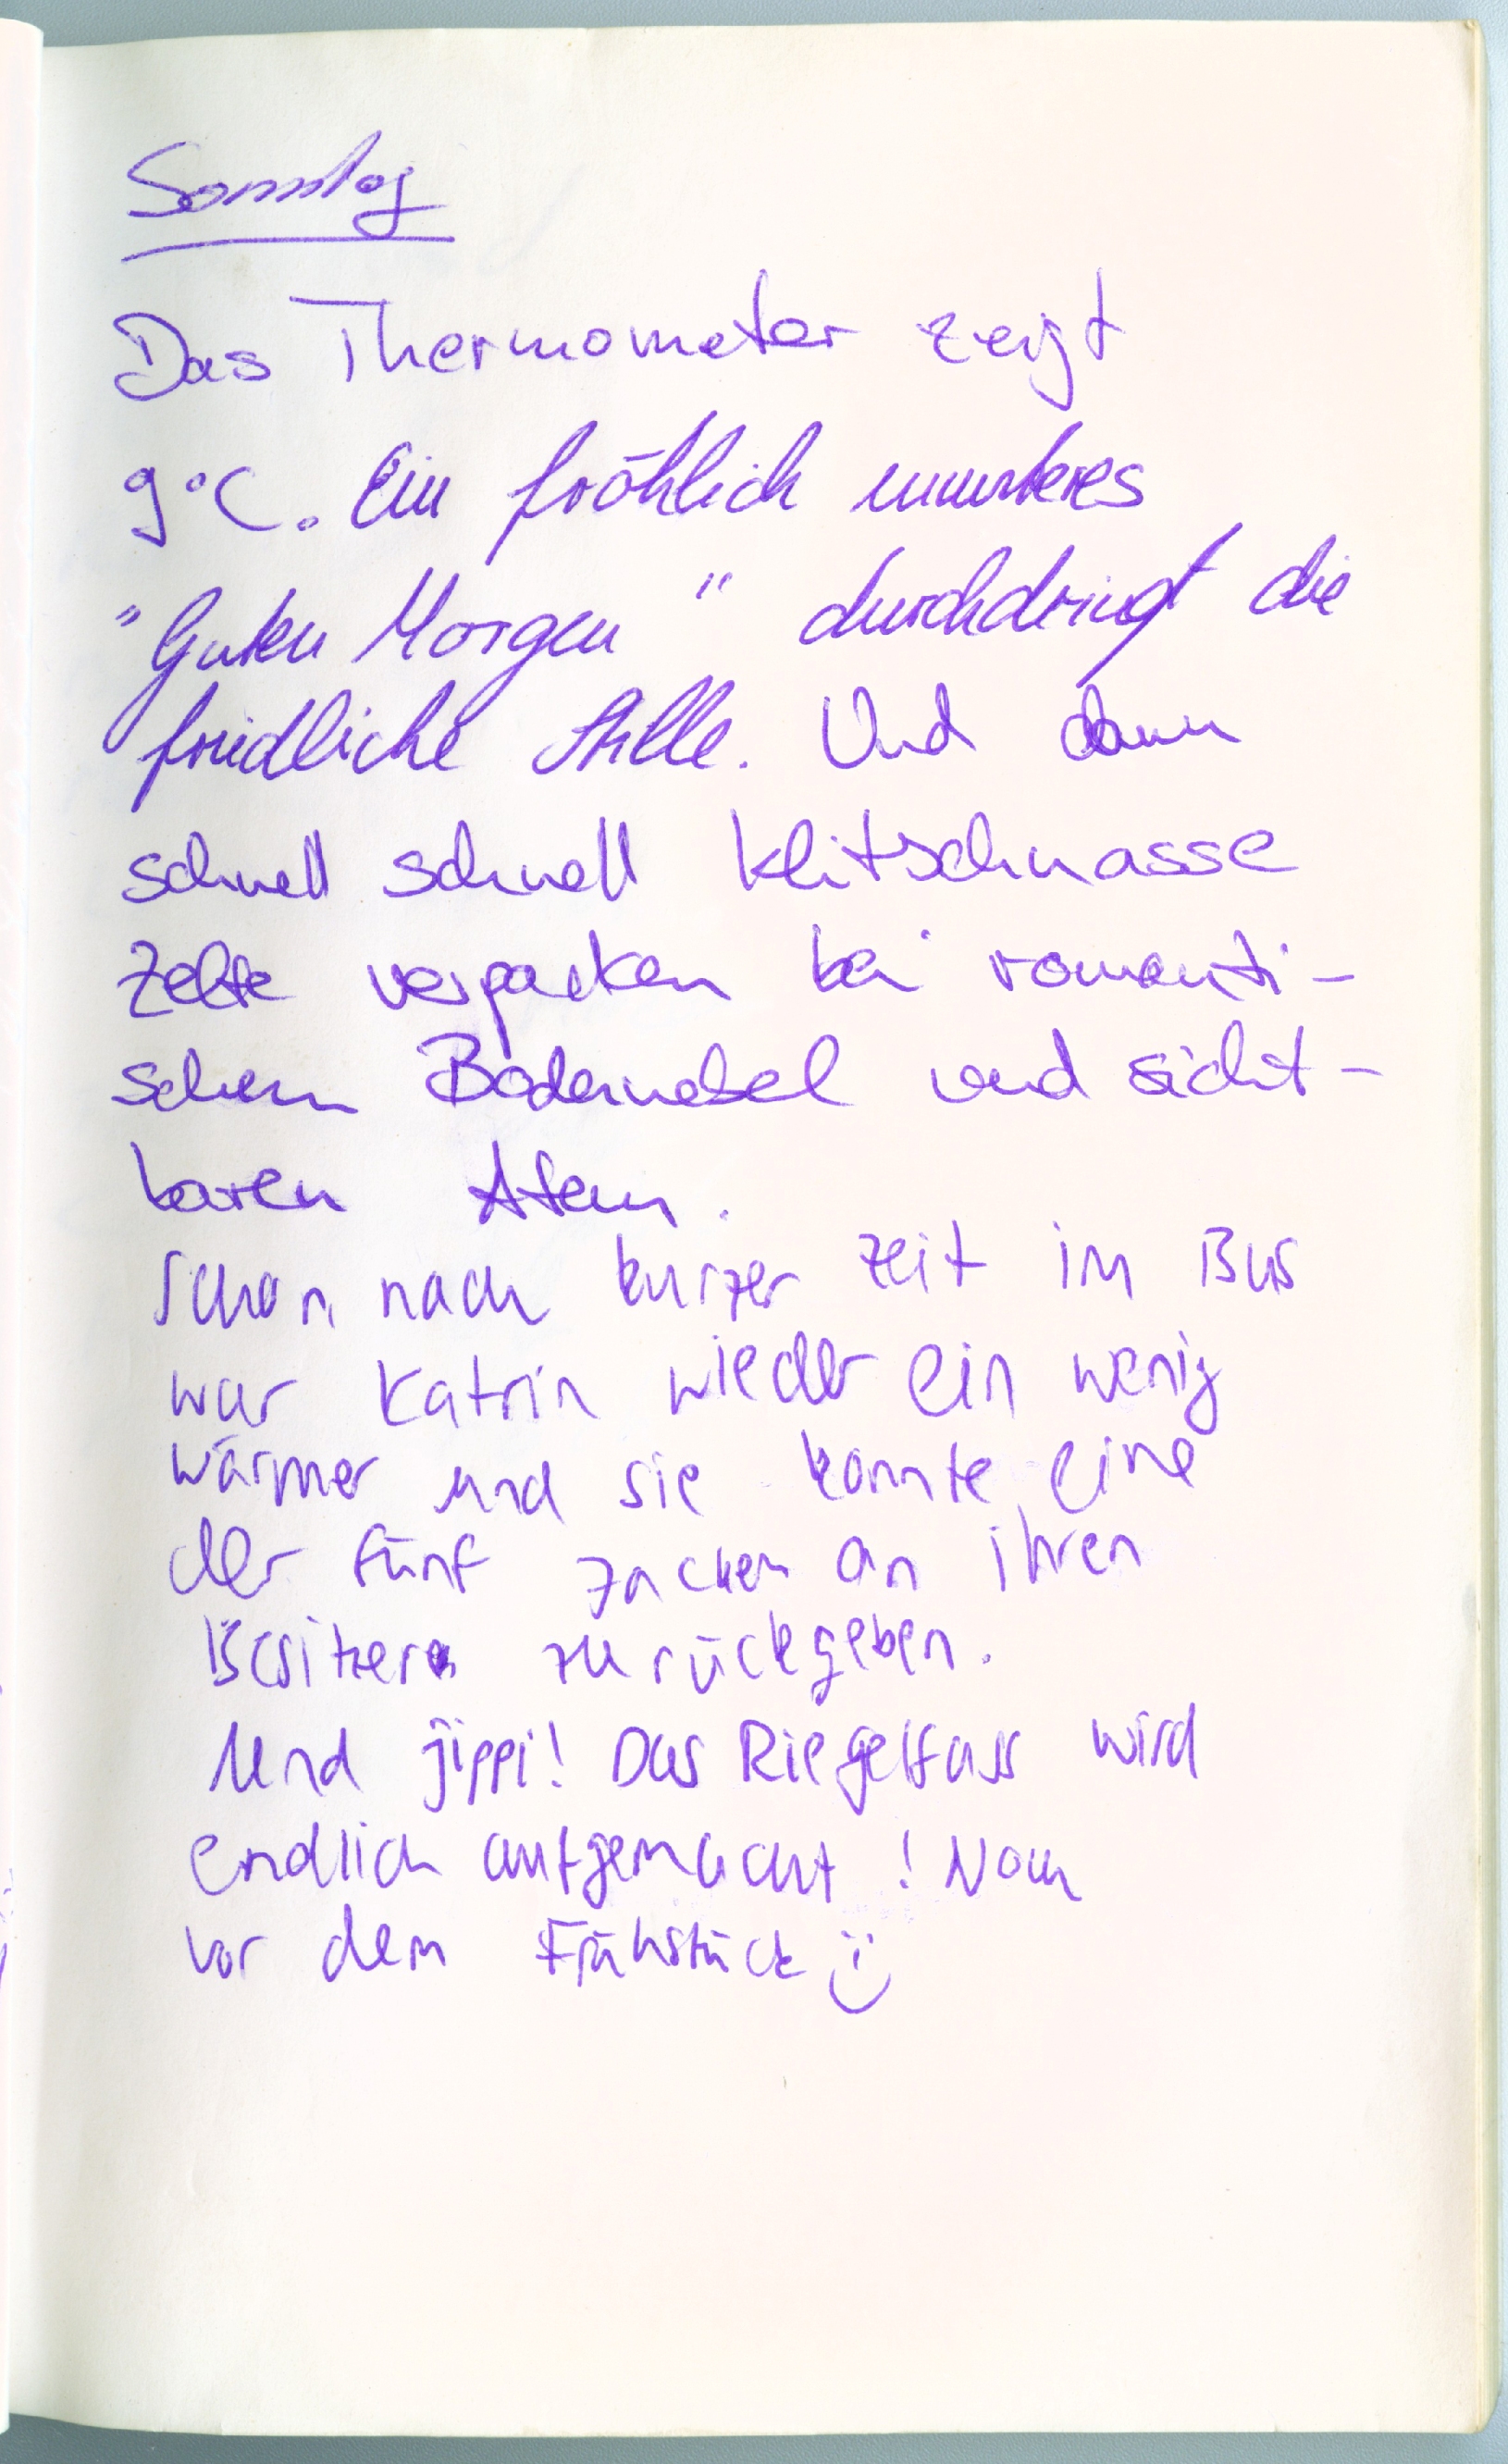 Sonntag
Das Thermometer zeigt
9°C. Ein fröhlich munteres
"Guten Morgen" durchdringt die
friedliche Stille. Und dann
schnell schnell klitschnasse
Zelte verpacken bei romanti-
schem Bodennebel und sicht-
baren Atem.
Schon nach kurzer Zeit im Bus
war Katrin wieder ein wenig
wärmer und sie konnte eine
der fünf Jacken an ihren
Besitzer zurückgeben.
Und jippi! Das Riegelfass wird
endlich aufgemacht! Noch
vor dem Frühstück :)